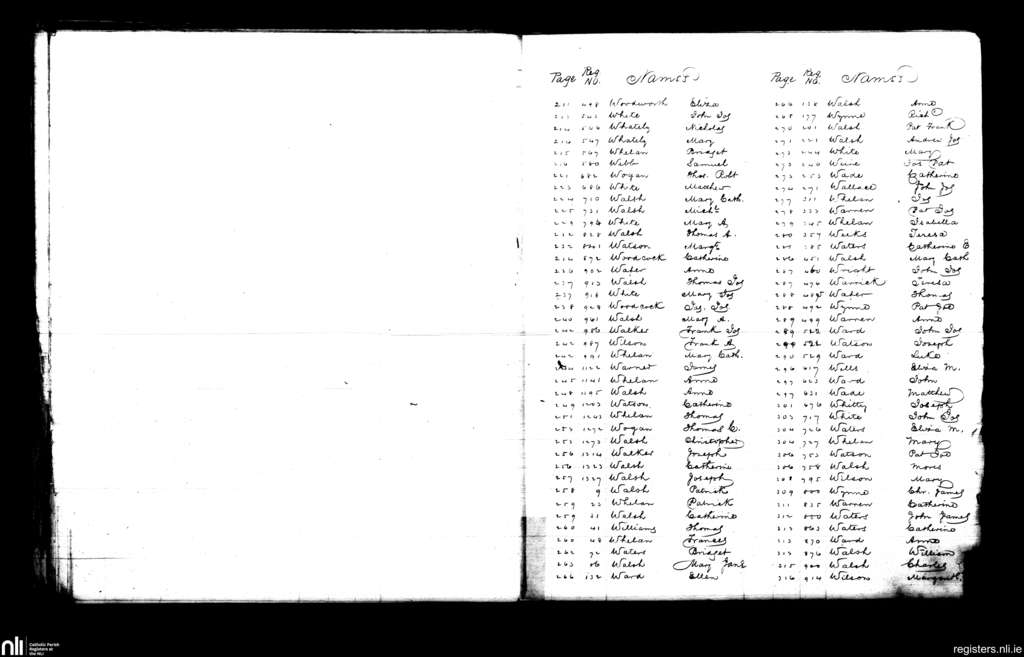 Page Reg No. Names
211 498 Woodworth Eliza
White John Jos
214 546 Whately Nicholas
214 547 Whately Mary
215 567 Whelan Bridget
580 Webb Samuel
221 682 Wogan Thos. Robt
223 686 White Matthew
224 710 Walsh Mary Cath.
225 731 Walsh Michl
229 794 White Mary A.
212 828 Walsh Thomas A.
232 Watson Margt
214 872 Woodcock Catherine
236 902 Water Anne
237 913 Walsh Thomas Jos
237 918 White Mary Jos
238 928 Woodcock Jas. Jos
240 961 Walsh Mary A.
242 986 Walker Frank Jos
242 987 Wilson Frank A
242 991 Whelan Mary Cath.
1122 Warner James
245 1141 Whelan Anne
248 1195 Walsh Anne
249 1203 Watson Catherine
251 1243 Whelan Thomas
253 1272 Wogan Thomas C.
253 1273 Walsh Christopher
256 1314 Walker Joseph
256 1323 Walsh Catherine
257 1327 Walsh Joseph
258 9 Walsh Patrick
259 23 Whelan Patrick
259 31 Walsh Catherine
260 41 Williams Thomas
260 48 Whelan Frances
262 72 Waters Bridget
263 86 Walsh Mary Jane
266 132 Ward Ellen
Page Reg No. Names
266 138 Walsh Anne
268 177 Wynne Richd
270 201 Walsh Pat Frank
271 221 Walsh Andrew Jos
273 244 White Mary
273 240 Jos Pat
273 253 Wade Catherine
274 271 Wallace John Jos
277 311 Whelan Jos
278 333 Warren Pat Jos
279 345 Whelan Isabella
280 357 Weeks Teresa
385 Waters Catherine E
286 451 Walsh Mary Cath
287 460 Wright John Jos
287 476 Warrick Teresa
288 Water Thomas
288 492 Wynne Pat Jos
289 499 Warren Anne
289 522 Ward John Jos
522 Watson Joseph
290 529 Ward Luke
296 617 Wills Eliza M.
297 623 Ward John
297 631 Wade Matthew
301 676 Whitty Joseph
303 717 White John Jos
304 726 Waters Eliza M.
304 727 Whelan Mary
306 753 Watson Pat Jos
306 758 Walsh Moses
308 795 Wilson Mary
309 800 Wynne Chr. James
311 835 Warren Catherine
312 850 Waters John James
313 863 Waters Catherine
313 870 Ward Anne
313 876 Walsh William
315 900 Walsh Charles
316 914 Wilson Margaret.
nli
Catholic Parish
Registers at
the NLI
registers.nli.ie